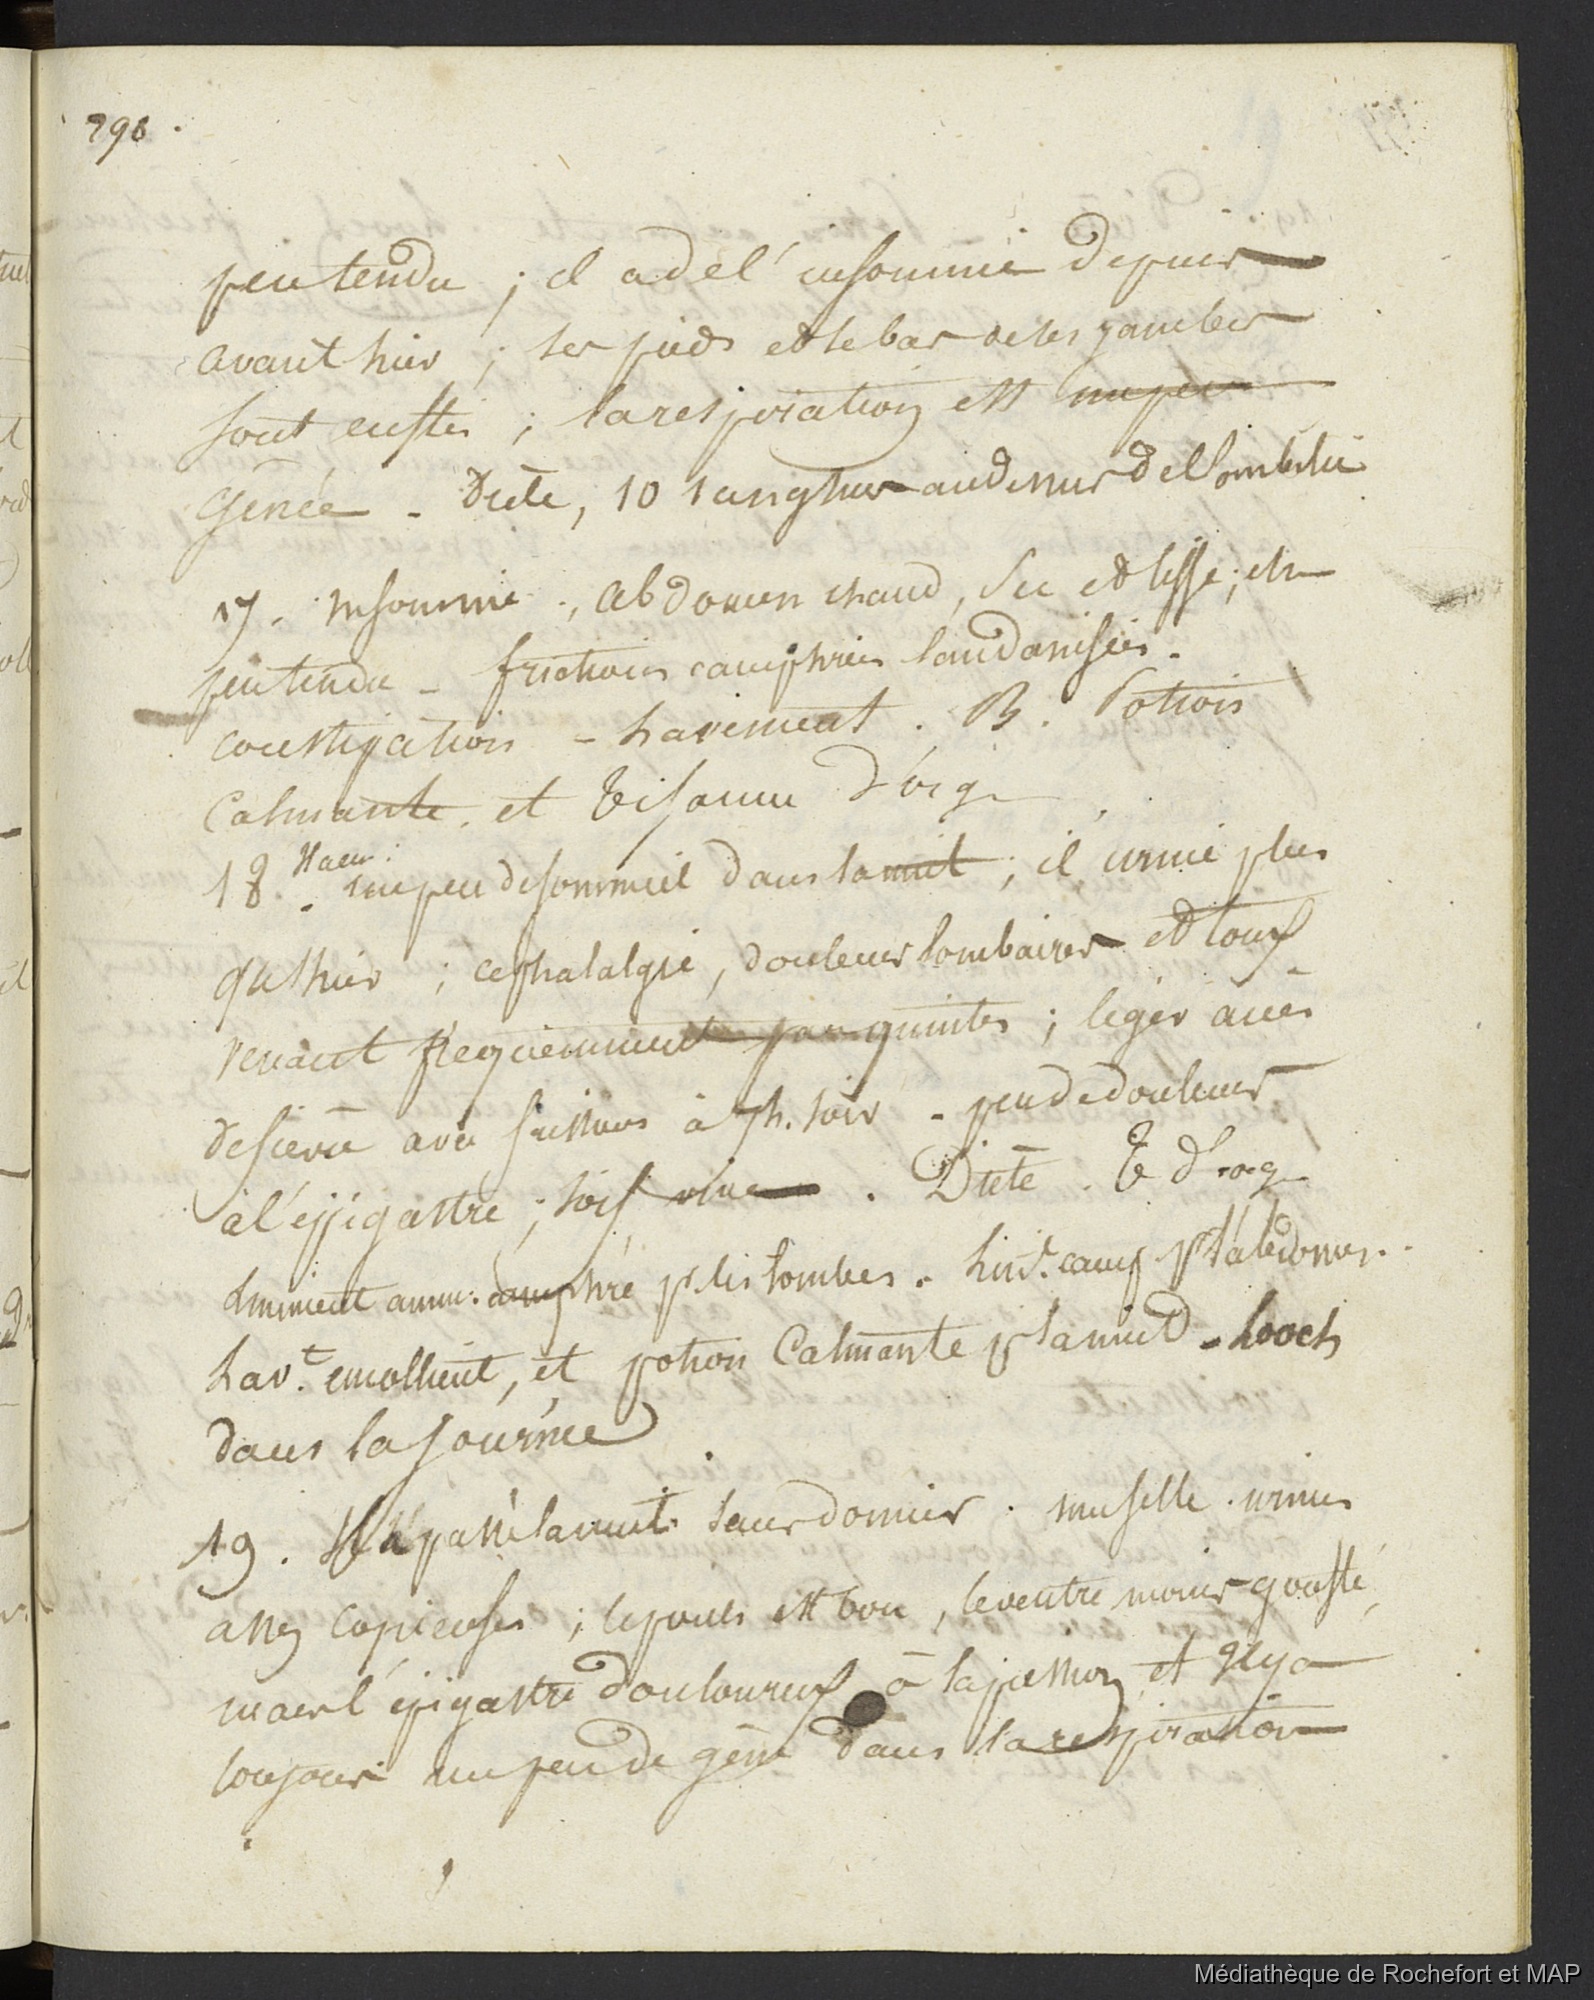 798.
peu tendu ; il a de l'insomnie depuis
avant hier ; ses pieds et le bas de ses jambes
sont enflés ; la respiration est un peu
gênée - Diète, 10 sangsues au dessus de l'ombilic
17. insomnie ; abdomen chaud, sec et lisse ; et
peu tendu - frictions camphrées laudanisées -
constipation - Lavement. B. Potion
Calmante et Tisanne d'orge
18. un peu de sommeil dans la nuit ; il urine plus
qu'hier ; cephalalgie, douleurs lombaires et toux
venant frequemment par quintes ; léger accès
de fievre avec frissons à 7h. soir - peu de douleurs
à l'épigastre ; soif vive. Diète. T. d'org
Liniment amm. camphré p. les lombes. Lint. camp p l'abdomen.
Lavt. emollient, et potion Calmante p la nuit - Looch
dans la journée
19. Il a passé la nuit sans dormir. une selle. urines
assez copieuses ; le pouls est bon, le ventre moins gonflé,
mais l'épigastre douloureux à la pression et il y a
toujours un peu de gêne dans la respiration
Médiathèque de Rochefort et MAP